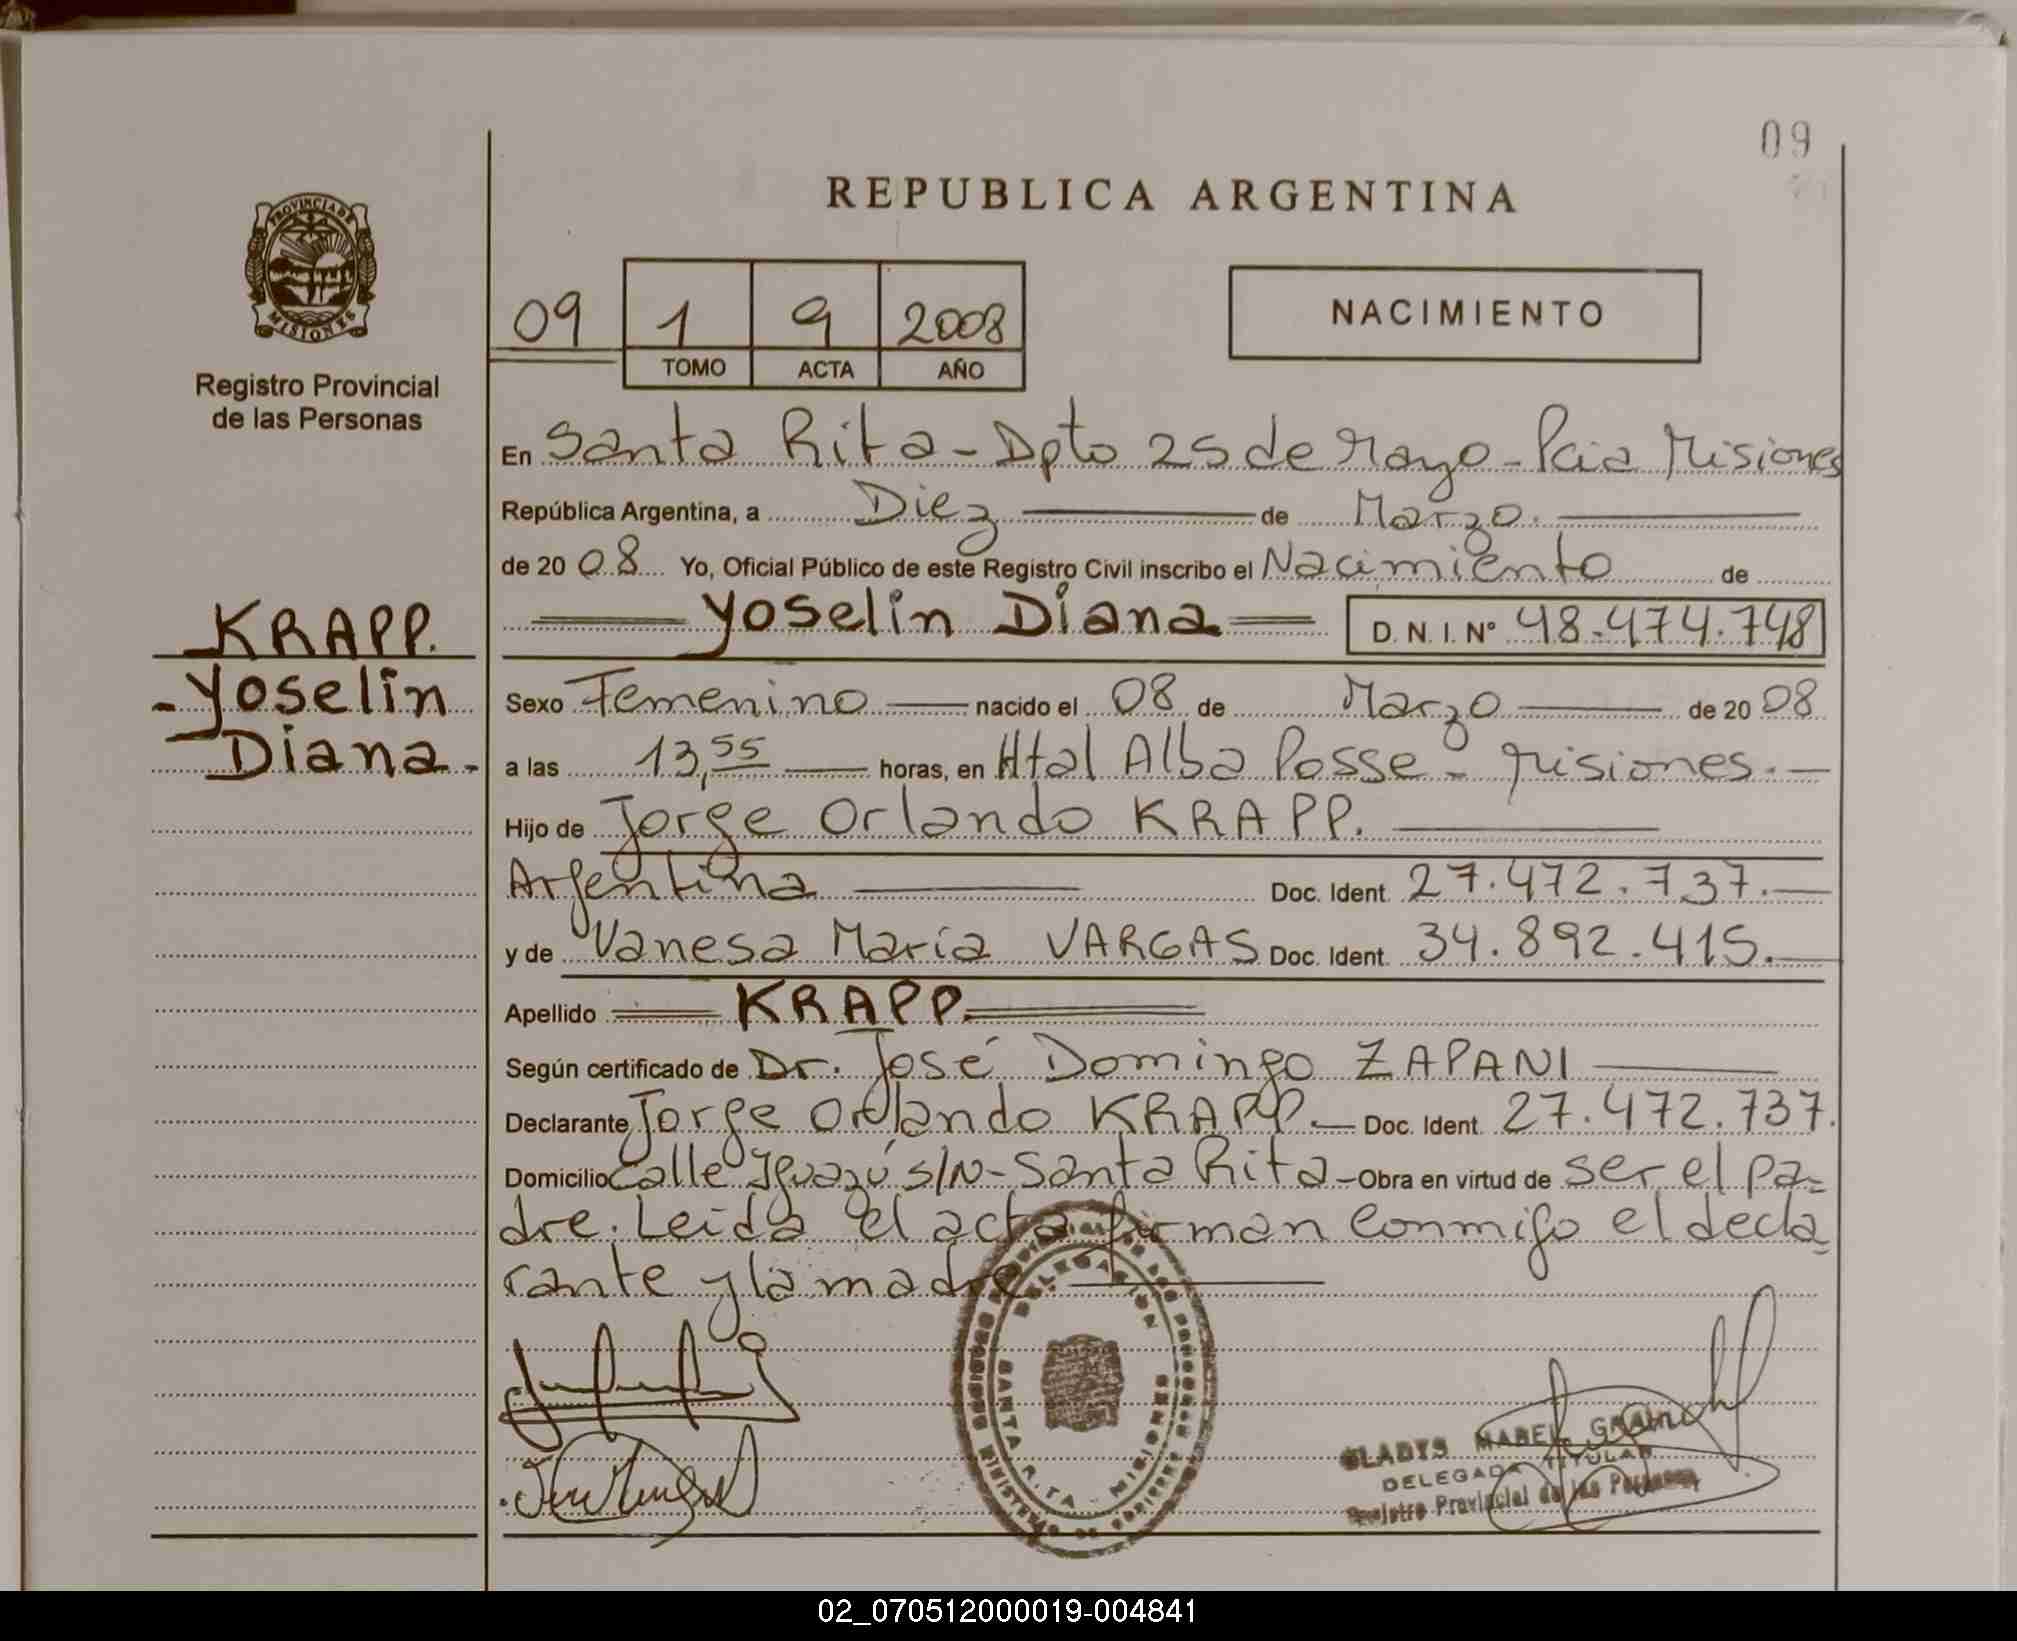 09
REPUBLICA ARGENTINA
PROVINCIA DE MISIONES
Registro Provincial
de las Personas
09 1 9 2008
TOMO ACTA AÑO
NACIMIENTO
En Santa Rita - Dpto 25 de Mayo - Pcia Misiones
República Argentina, a Diez de Marzo.
de 2008 Yo, Oficial Público de este Registro Civil inscribo el Nacimiento de
Yoselin Diana D.N.I. Nº 48.474.748
KRAPP.
- Yoselin
Diana -
Sexo Femenino nacido el 08 de Marzo de 2008
a las 13,55 horas, en Htal Alba Posse - Misiones. -
Hijo de Jorge Orlando KRAPP.
Argentina Doc. Ident. 27.472.737. -
y de Vanesa María VARGAS Doc. Ident. 34.892.415. -
Apellido KRAPP.
Según certificado de Dr. José Domingo ZAPANI
Declarante Jorge Orlando KRAPP. - Doc. Ident. 27.472.737.
Domicilio Calle Iguazú s/N - Santa Rita - Obra en virtud de ser el pa=
dre. Leída el acta firman conmigo el decla=
rante y la madre
DELEGACION
SANTA RITA - MISIONES
GLADYS MABEL
DELEGADA TITULAR
Registro Provincial de las Personas
02_070512000019-004841